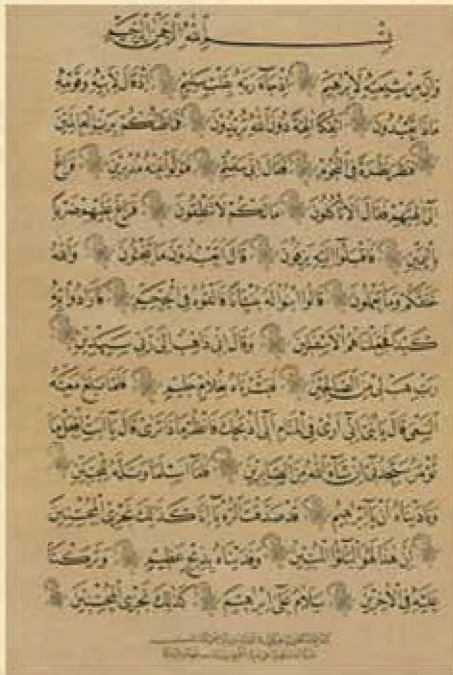 بسم الله الرحمن الرحيم
وان من شيعته لابرهيم اذ جاء ربه بقلب سليم اذ قال لابيه وقومه
ماذا تعبدون ائفكا الهة دون الله تريدون فما ظنكم برب العالمين
فنظر نظرة في النجوم فقال اني سقيم فتولوا عنه مدبرين فراغ
الى الهتهم فقال الا تاكلون ما لكم لا تنطقون فراغ عليهم ضربا
باليمين فاقبلوا اليه يزفون قال اتعبدون ما تنحتون والله
خلقكم وما تعملون قالوا ابنوا له بنيانا فالقوه في الجحيم فارادوا به
كيدا فجعلناهم الاسفلين وقال اني ذاهب الى ربي سيهدين
رب هب لي من الصالحين فبشرناه بغلام حليم فلما بلغ معه
السعي قال يا بني اني ارى في المنام اني اذبحك فانظر ماذا ترى قال يا ابت افعل ما
تؤمر ستجدني ان شاء الله من الصابرين فلما اسلما وتله للجبين
وناديناه ان يا ابرهيم قد صدقت الرؤيا انا كذلك نجزي المحسنين
ان هذا لهو البلؤا المبين وفديناه بذبح عظيم وتركنا
عليه في الاخرين سلام على ابرهيم كذلك نجزي المحسنين